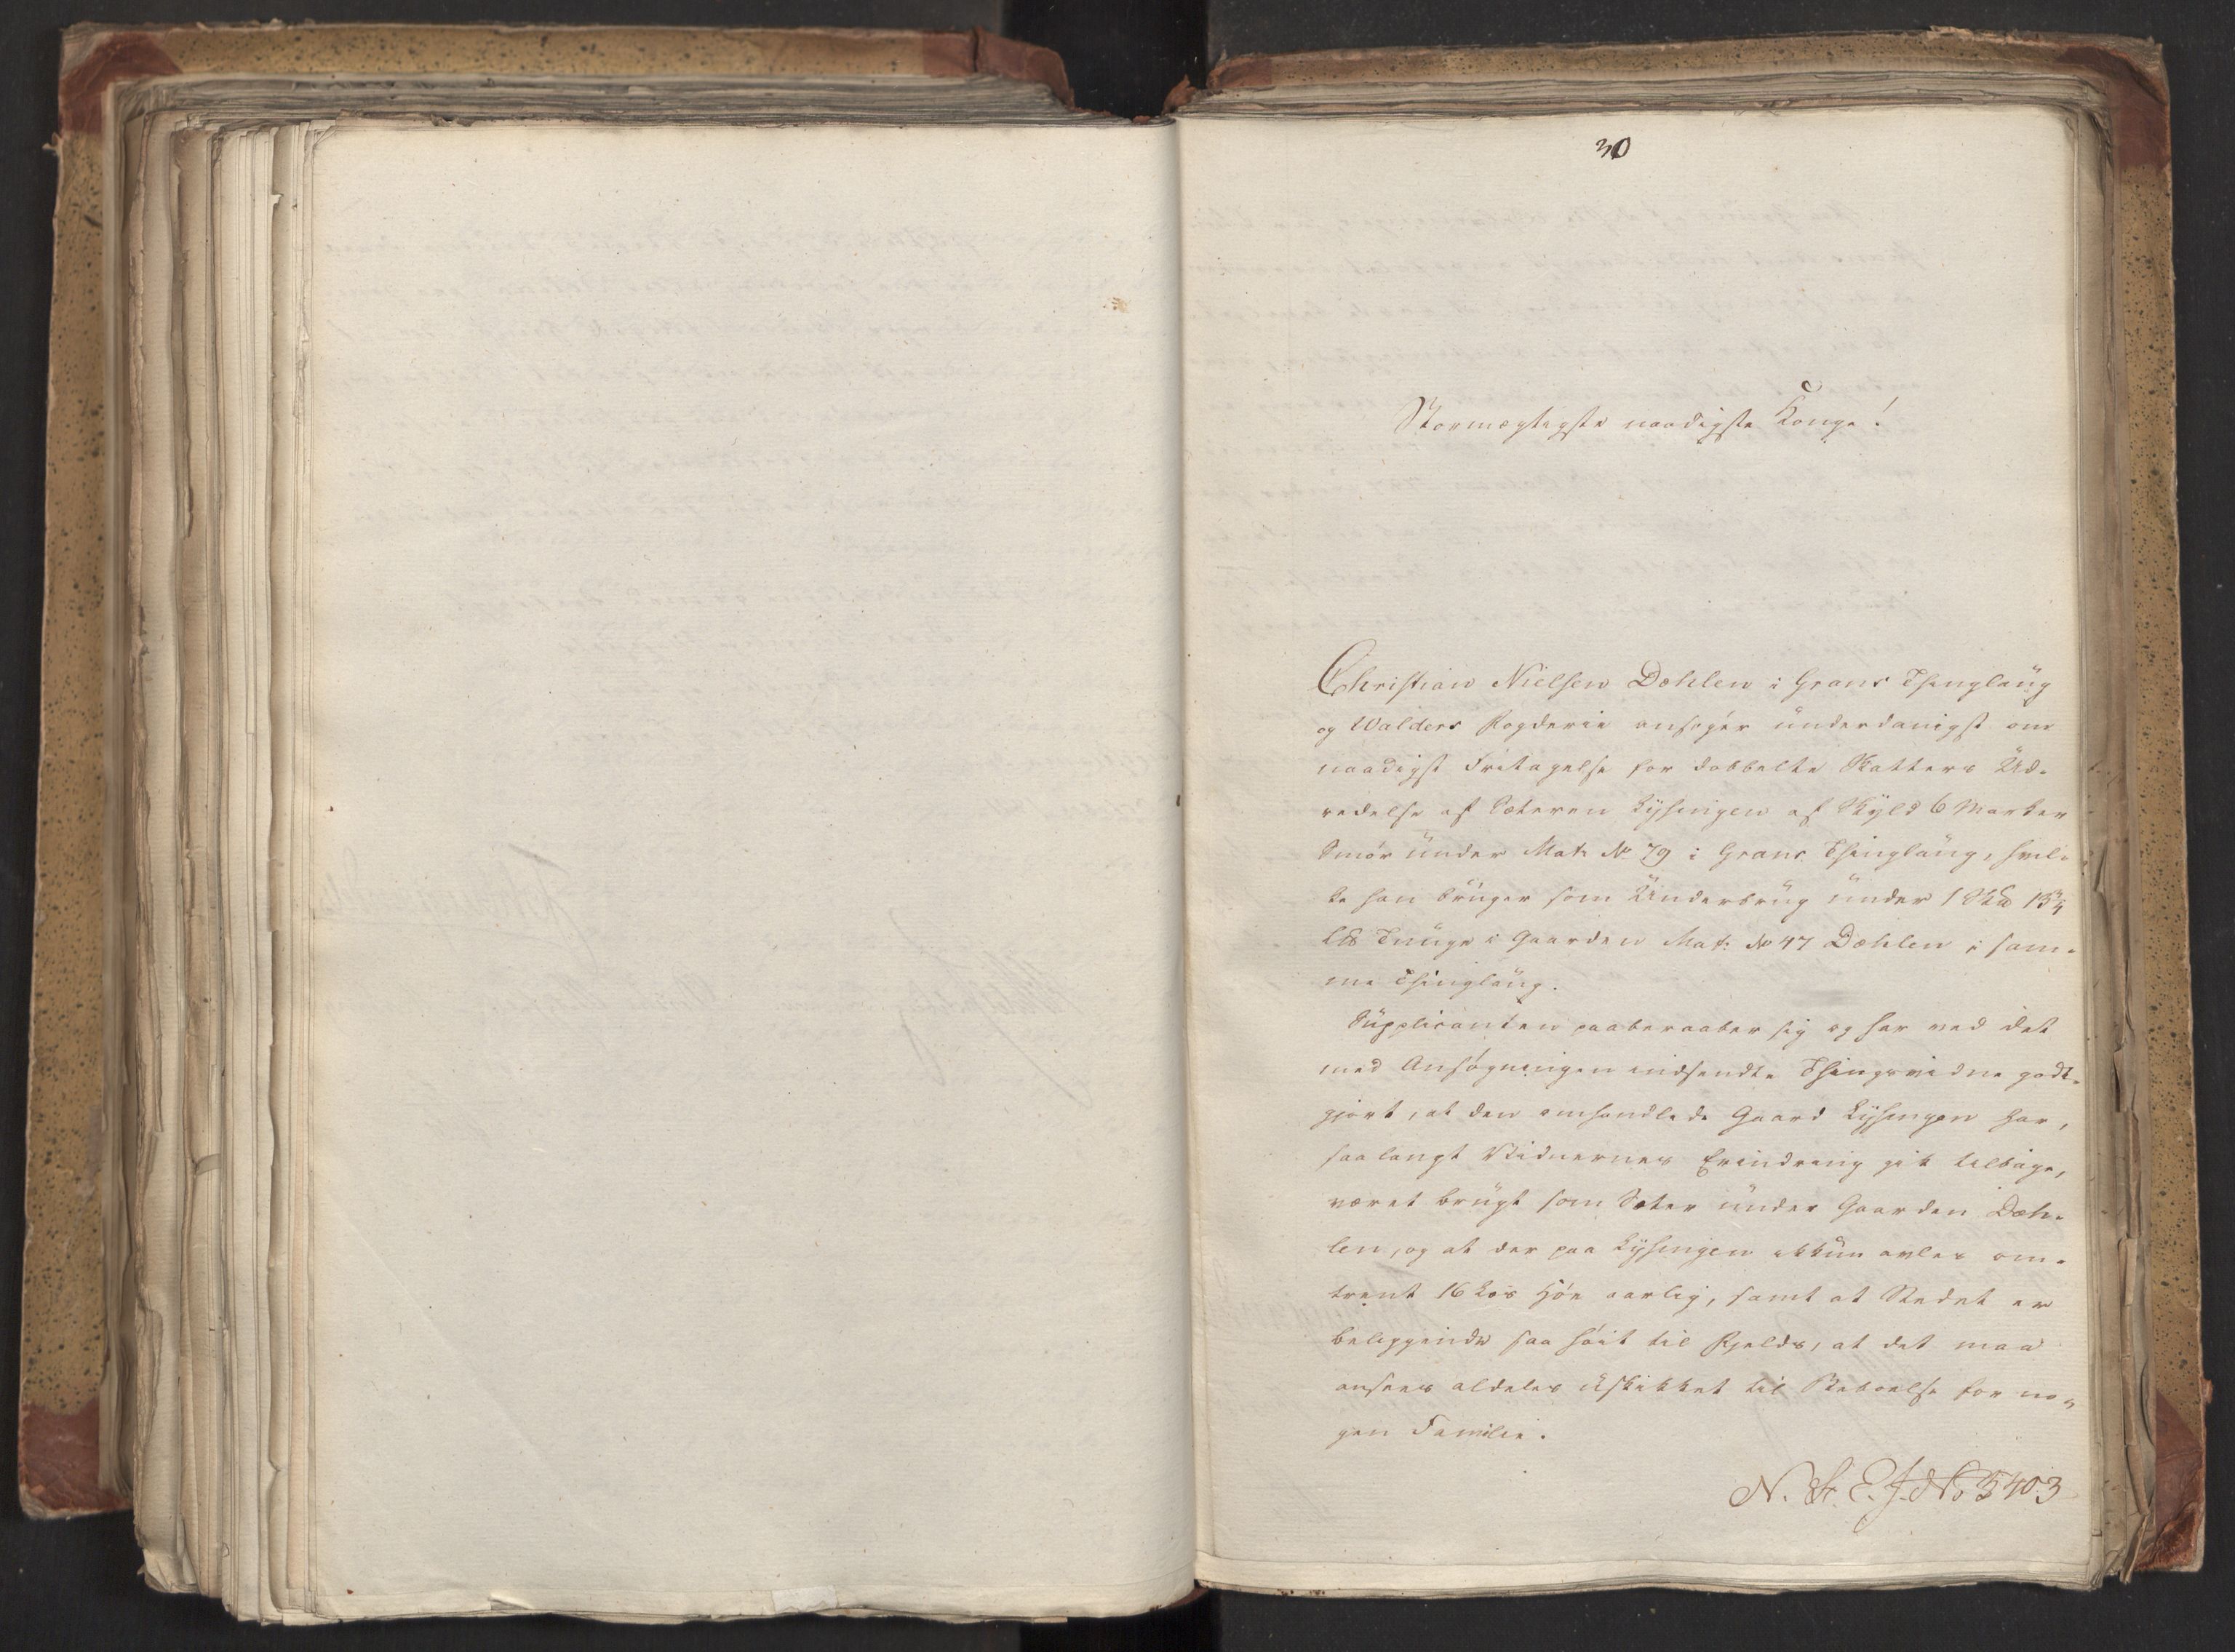 30
Stormægtigste naadigste Konge!
Christian Nielsen Dæhlen i Grans Thinglaug
og Walders Fogderie ansøger underdanigst om
naadigst Fritagelse for dobbelte Skatters Ud-
redelse af Sæteren Lysingen af Skyld 6 Marker
Smør under Mat: No 79 i Grans Thinglaug, hvil-
ke han bruger som Underbrug under 1 Skd 1 3/4
L℔ Tunge i Gaarden Mat: No 47 Dæhlen i sam-
me Thinglaug.
Supplicanten paaberaaber sig og har ved det
med Ansøgningen indsendte Thingsvidne godt-
gjort, at den omhandlede Gaard Lysingen har,
saalangt Vidnernes Erindring gik tilbage,
været brugt som Sæter under Gaarden Dæh-
len, og at der paa Lysingen ikkun avles om-
trent 16 Læs Høe aarlig, samt at Stedet er
beliggende saa høit til Fjelds, at det maa
ansees aldeles uskikket til Beboelse for no-
gen Familie.
N. St. E. J. No 5403